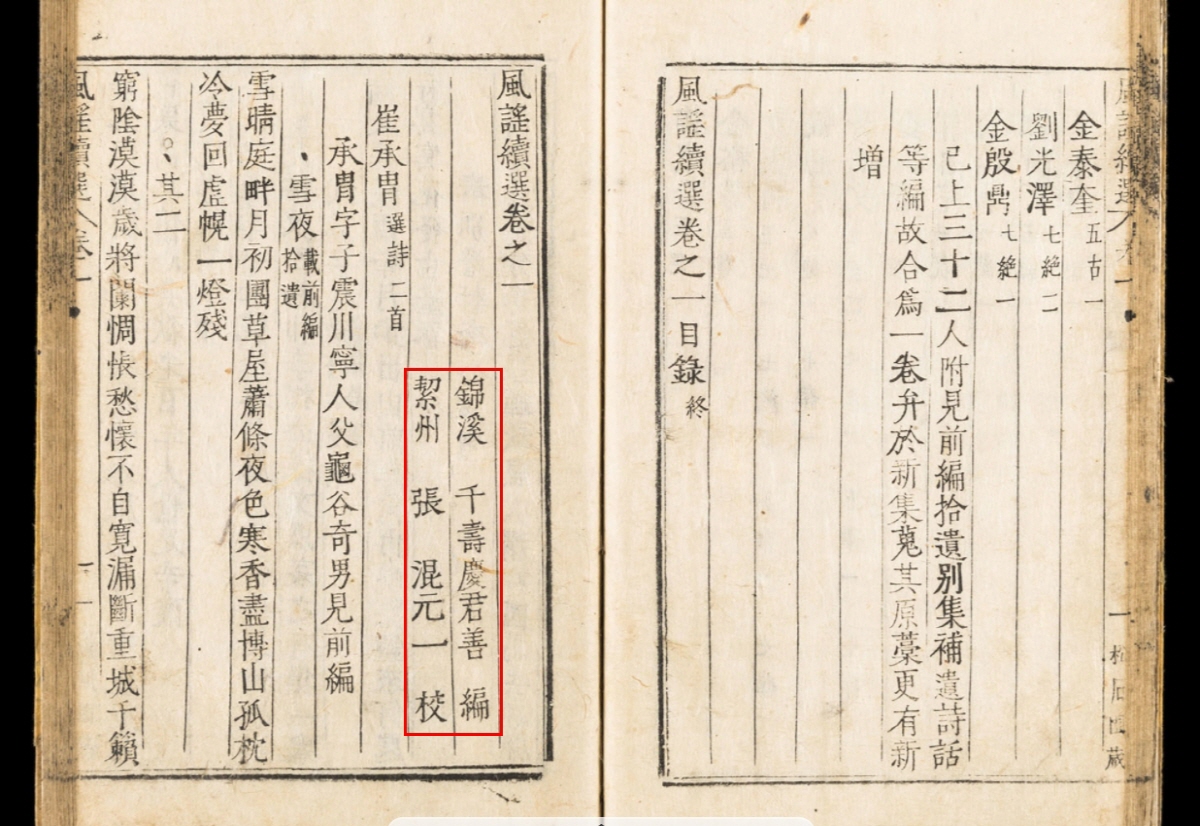 金泰奎 五古一
劉光澤 七絶二
金殷鼎 七絶一
已上三十二人附見前編拾遺別集補遺詩話
等編故合爲一卷弁於新集蒐其原藁更有新
增
風謠續選卷之一目錄 終
風謠續選卷之一
錦溪 千壽慶君善 編
絜州 張混元一 校
崔承胄 選詩二首
承胄字子震川寧人父龜谷奇男見前編
雪夜 載前編拾遺
雪晴庭畔月初團草屋蕭條夜色寒香盡博山孤枕
冷夢回虛幌一燈殘
其二
窮陰漠漠歲將闌惆悵愁懷不自寬漏斷重城千籟
風謠續選 卷一